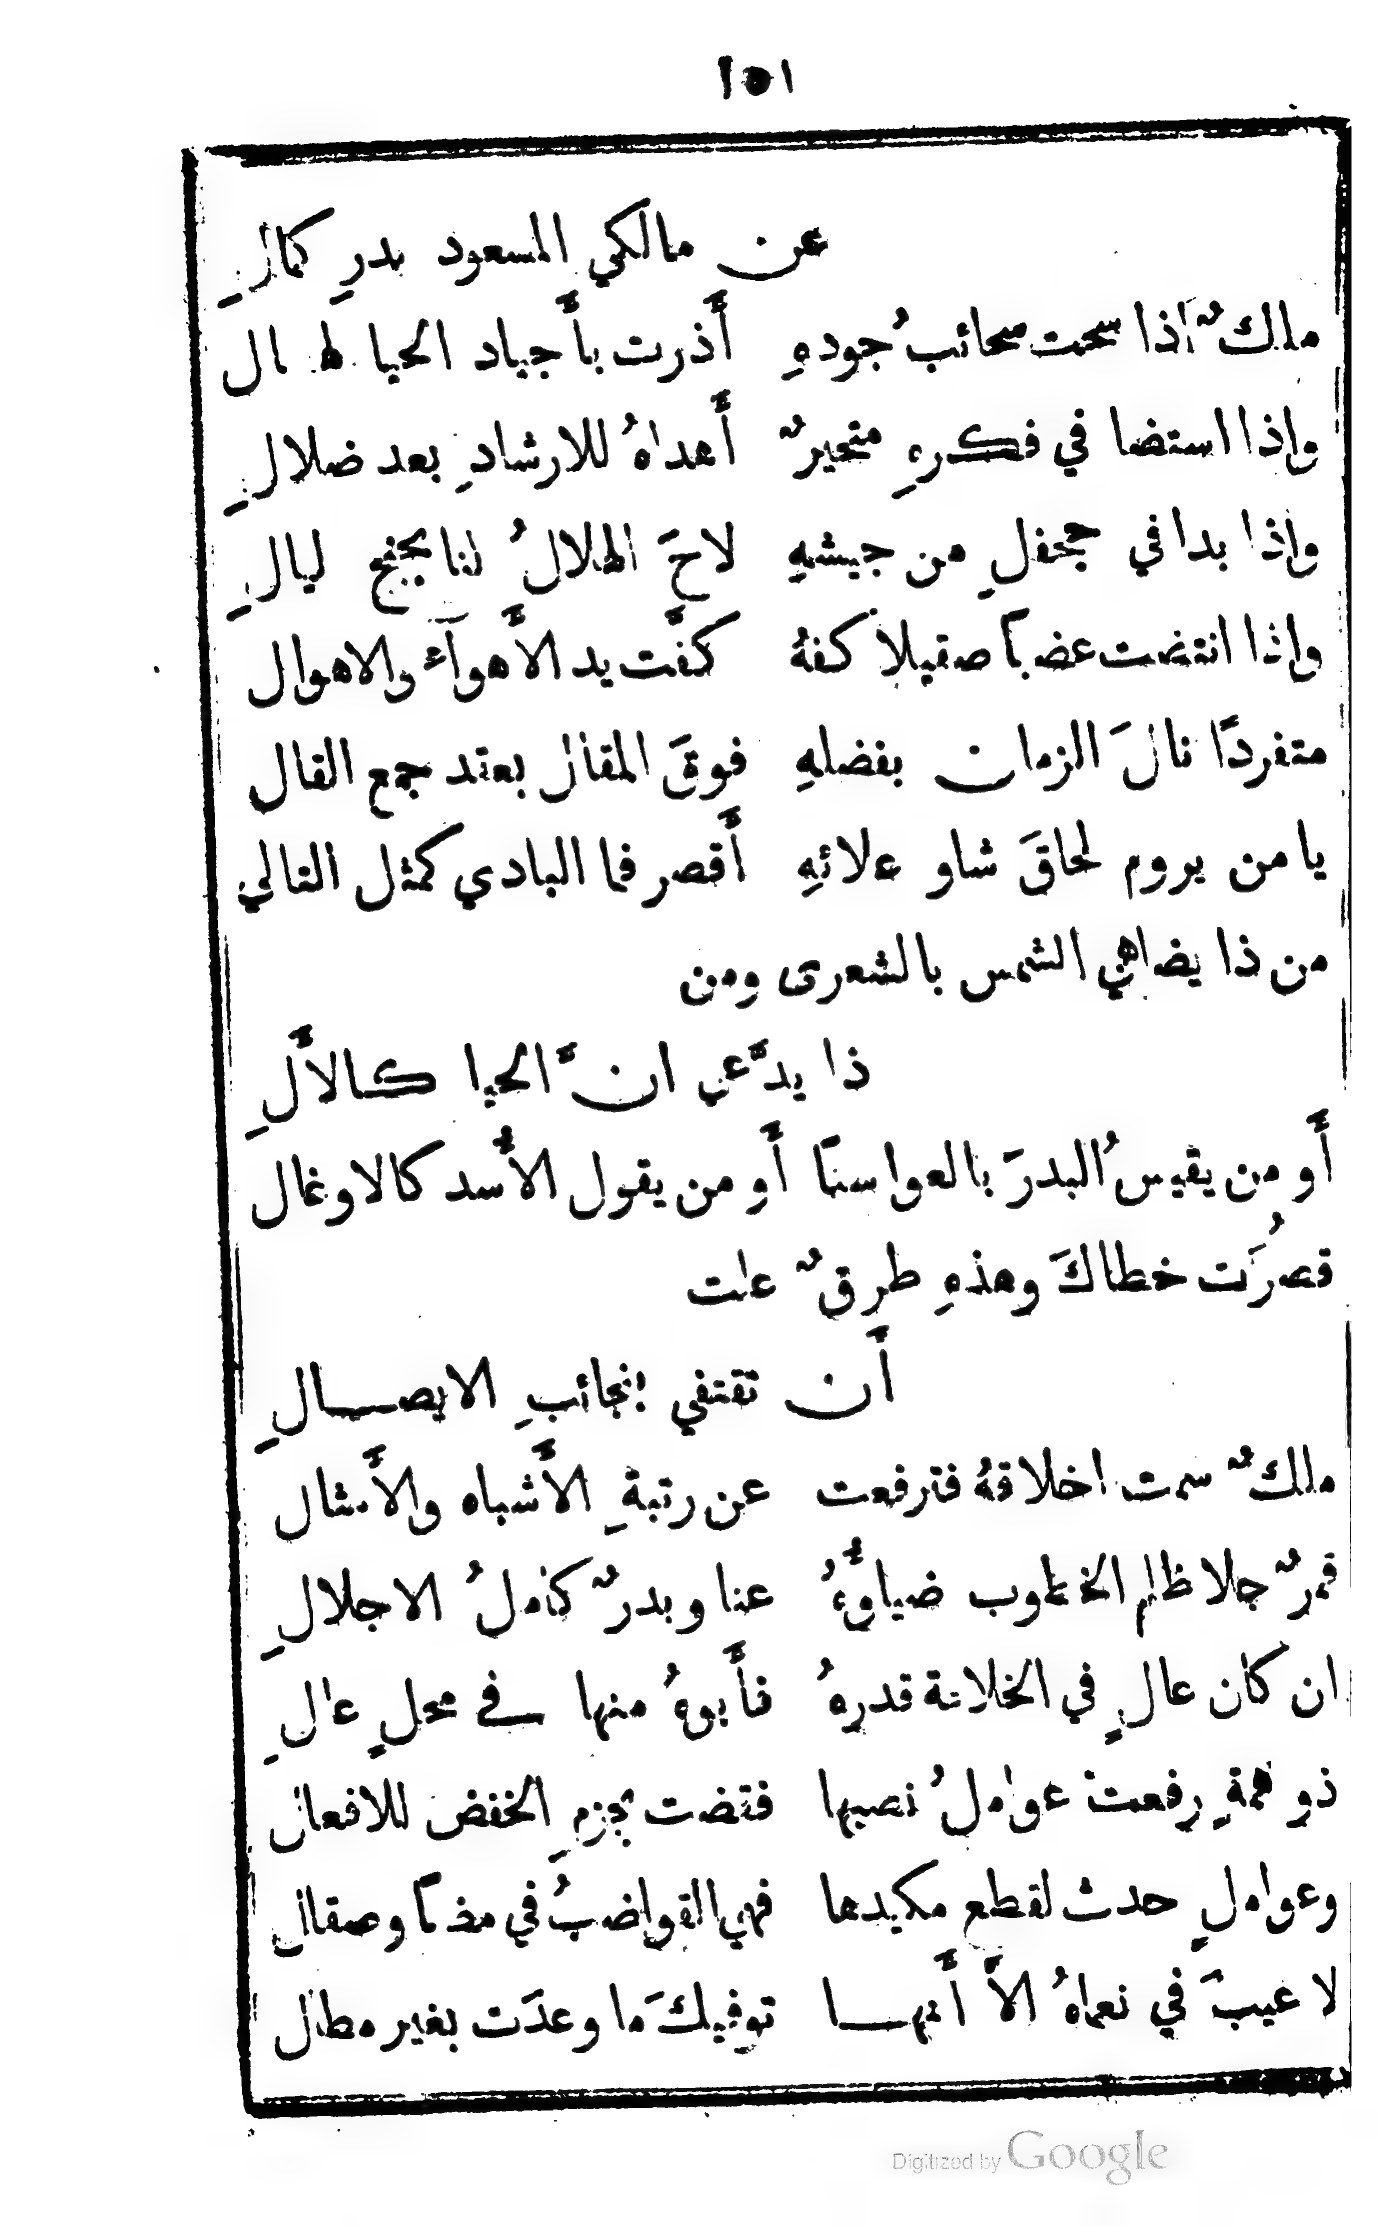 ١٥١
عن مالكي المسعود بدرِ كمالِ
ملكٌ اذا سحت سحائبُ جودهِ أذرت بأجياد الحيا
واذا استضا في فكرهِ متحيرٌ أهداهُ للارشادِ بعد ضلالِ
واذا بدا في جحفلٍ من جيشهِ لاحَ الهلالُ لنا بجنح ليالِ
واذا انتضت عضباً صقيلاً كفهُ كفَّت يد الأهوآء والاهوال
متفردًا نالَ الزمان بفضلهِ فوقَ المقال بعقد جمع القال
يا من يروم لحاقَ شاو علائهِ أقصر فما البادي كمثل التالي
من ذا يضاهي الشمس بالشعرى ومن
ذا يدَّعي انَّ الحيا كالآلِ
أو من يقيسُ البدرَ بالعوا سنًا أو من يقول الأُسد كالاوغال
قصُرَت خطاكَ وهذهِ طرقٌ علت
أَن تقتفي بنجائبِ الايصالِ
ملكٌ سمت اخلاقهُ فترفعت عن رتبةِ الأشباه والأمثال
قمرٌ جلا ظلم الخطوب ضياوُّهُ عنا وبدرٌ كاملُ الاجلالِ
ان كان عالٍ في الخلافة قدرهُ فأَبوهُ منها في محلٍ عالِ
ذو همةٍ رفعت عواملُ نصبها فقضت بجزمِ الخفض للافعال
وعواملٍ حدت لقطع مكيدها فهي القواضبُ في مضًا وصقال
لا عيبَ في نعماهُ الاَّ أنها توفيكَ ما وعدَت بغير مطال
Digitized by Google